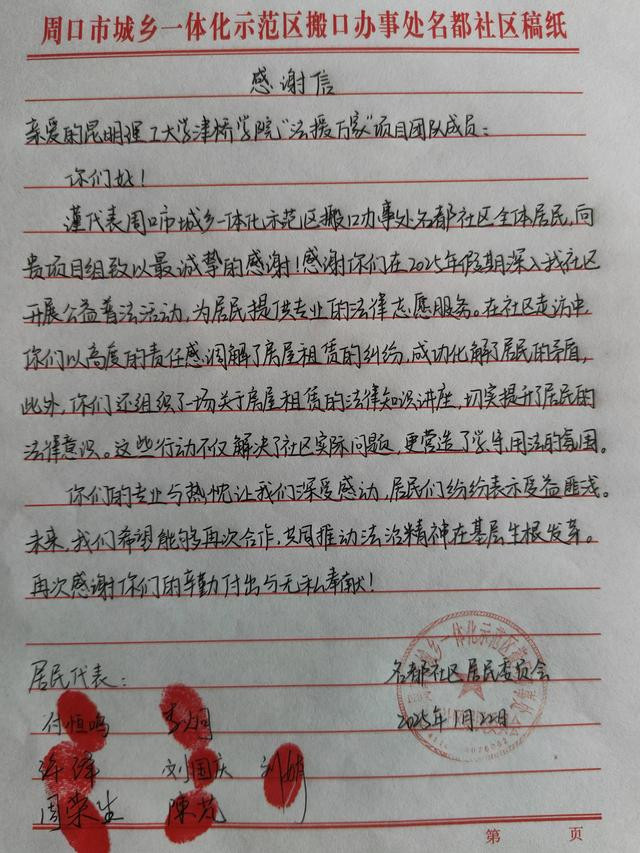 周口市城乡一体化示范区搬口办事处名都社区稿纸
感谢信
亲爱的昆明理工大学津桥学院“法援万家”项目团队成员：
你们好！
谨代表周口市城乡一体化示范区搬口办事处名都社区全体居民，向
贵项目组致以最诚挚的感谢！感谢你们在2025年假期深入我社区
开展公益普法活动，为居民提供专业的法律志愿服务。在社区走访中
你们以高度的责任感调解了房屋租赁的纠纷，成功化解了居民的矛盾，
此外，你们还组织了一场关于房屋租赁的法律知识讲座，切实提升了居民的
法律意识。这些行动不仅解决了社区实际问题，更营造了学法用法的氛围。
你们的专业与热忱让我们深受感动，居民们纷纷表示受益匪浅。
未来，我们希望能够再次合作，共同推动法治精神在基层生根发芽。
再次感谢你们的辛勤付出与无私奉献！
居民代表： 名都社区居民委员会
付恒鸣 李炯 2025年1月22日
刘国庆
周荣生
第 页